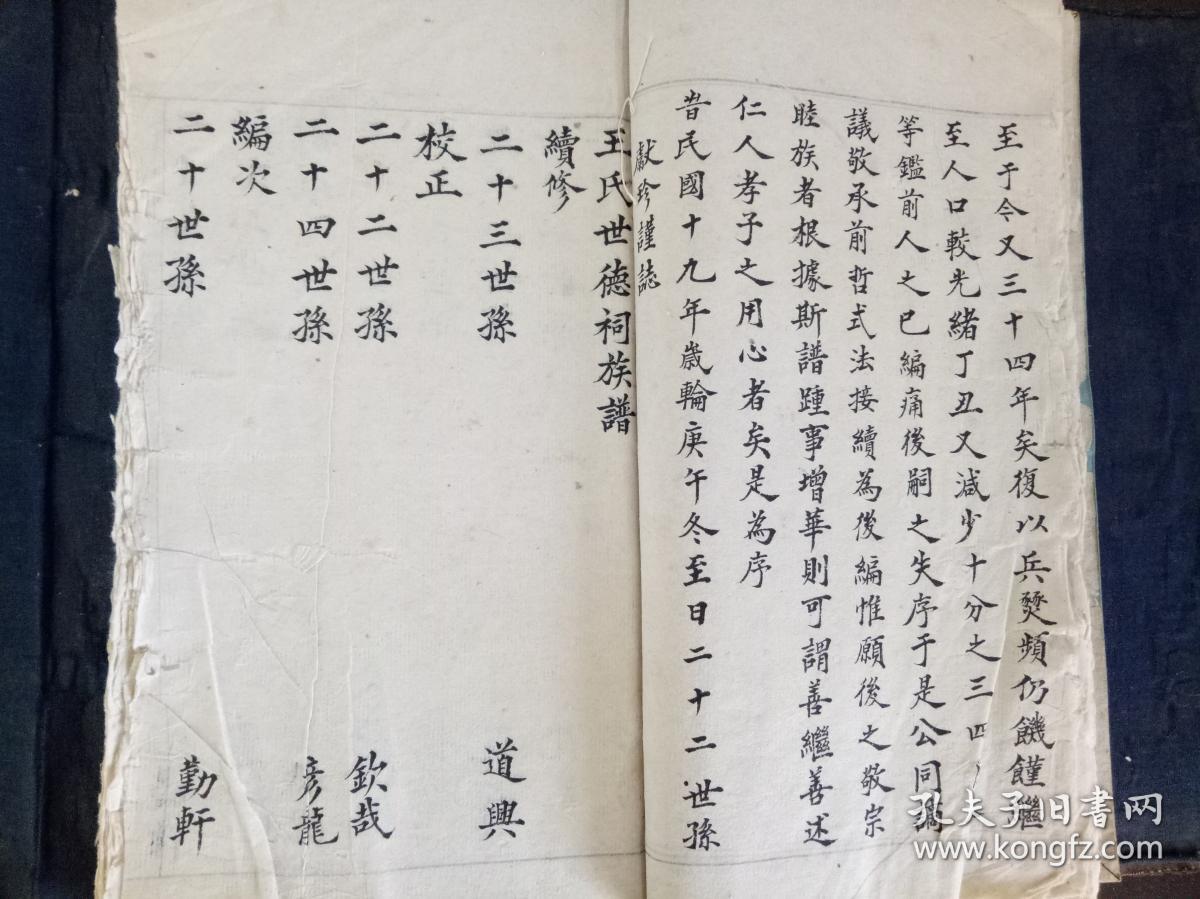 至于今又三十四年矣復以兵燹頻仍饑饉繼
至人口較光緒丁丑又減少十分之三四
等鑑前人之已編痛後嗣之失序于是公同
議敬承前哲式法接續為後編惟願後之敬宗
睦族者根據斯譜踵事增華則可謂善繼善述
仁人孝子之用心者矣是為序
昔民國十九年歲輪庚午冬至日二十二世孫
獻珍謹誌
王氏世德祠族譜
續修
二十三世孫 道興
校正
二十二世孫 欽哉
二十四世孫 彥龍
編次
二十世孫 勤軒
孔夫子旧书网
www.kongfz.com